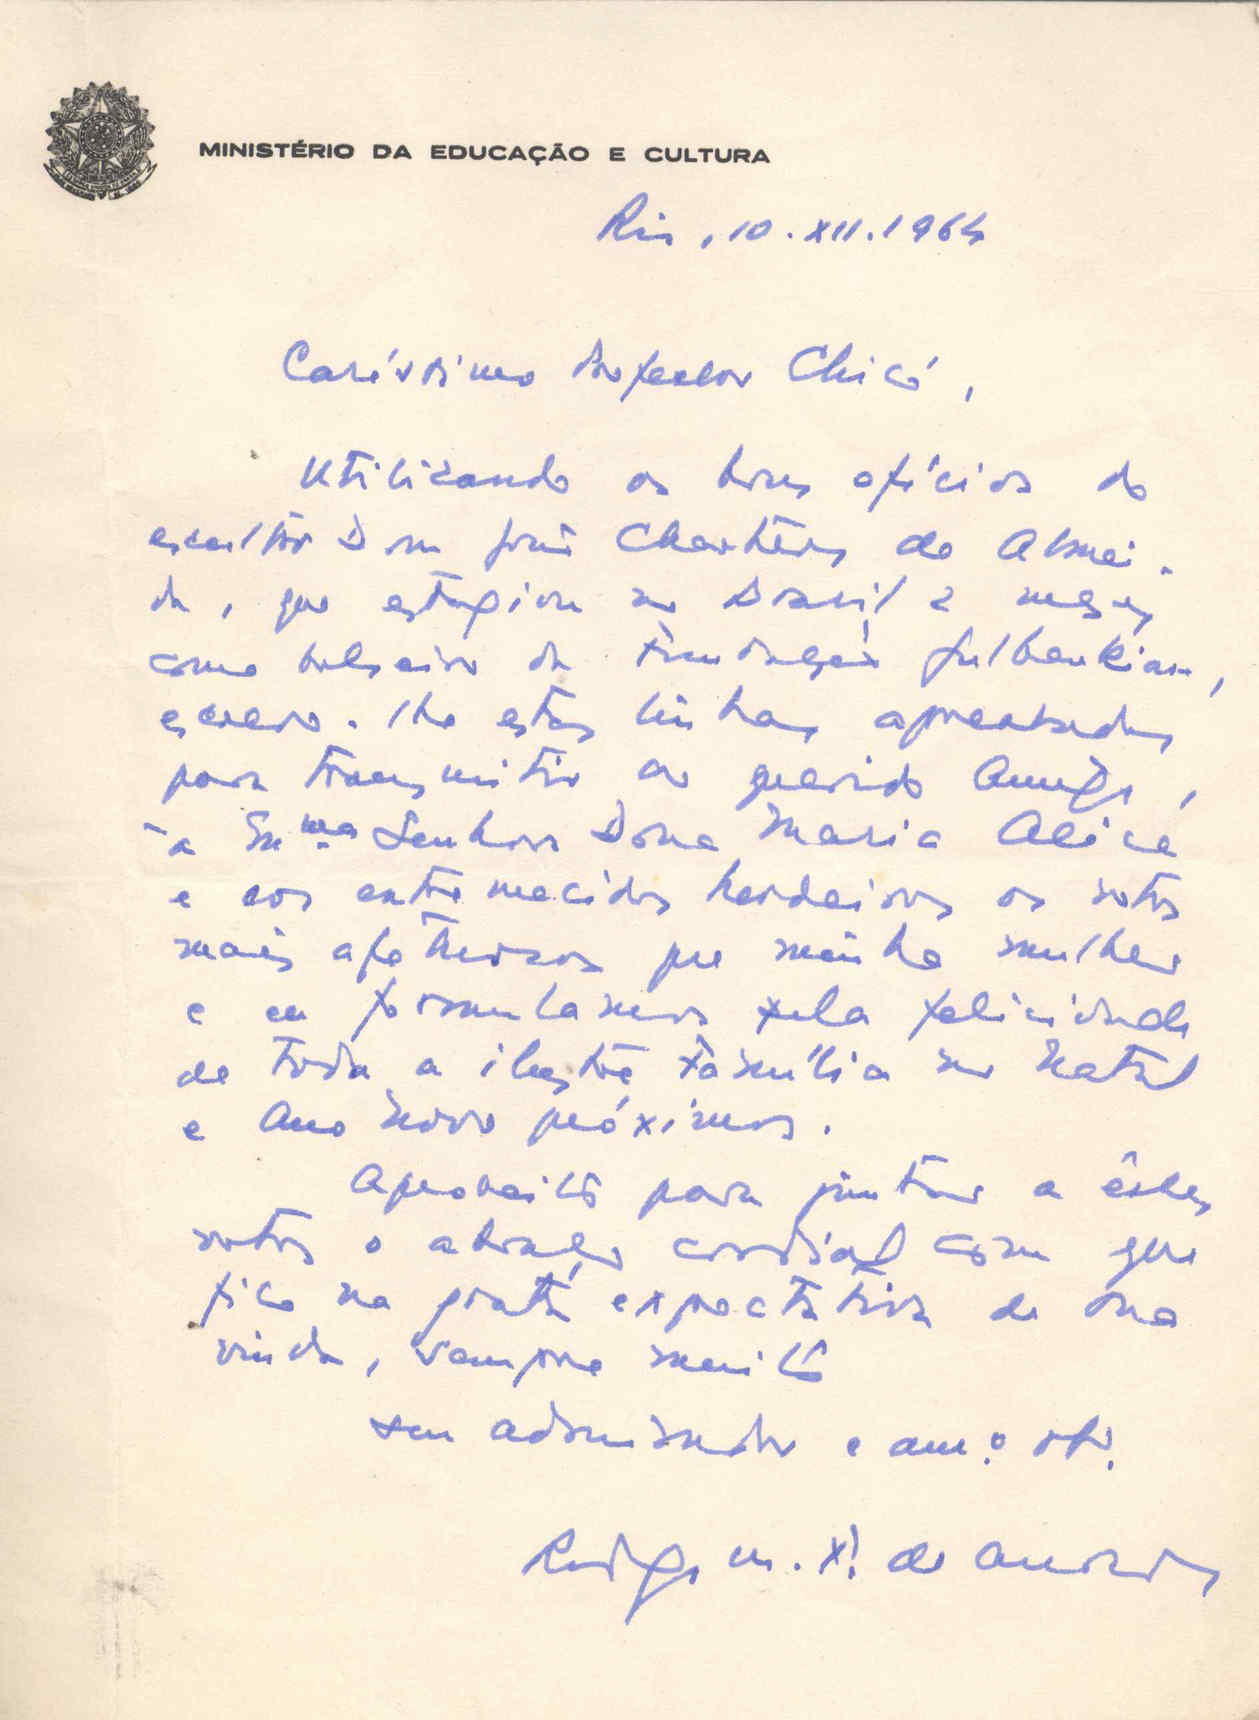 MINISTÉRIO DA EDUCAÇÃO E CULTURA
Rio, 10.XII.1964
Caríssimo Professor Chicó,
Utilizando os bons ofícios do
escultor Dom José Charters de Almei-
da, que estagiou no Brasil 2 meses
como bolseiro da Fundação Gulbenkian,
escrevo-lhe estas linhas apressadas
para transmitir ao querido Amigo,
à Exma Senhora Dona Maria Alice
e aos entremecidos herdeiros os votos
mais afetuosos que minha mulher
e eu formulamos pela felicidade
de toda a ilustre família no Natal
e Ano Novo próximos.
Aproveito para juntar a êstes
votos o abraço cordial com que
fico na grata expectativa de sua
vinda, sempre muito
seu admirador e am.º
Rodrigo M. F. de Andrade